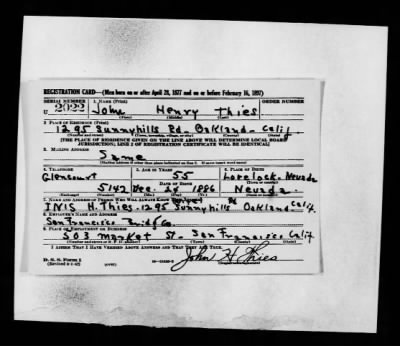 REGISTRATION CARD—(Men born on or after April 28, 1877 and on or before February 16, 1897)
SERIAL NUMBER 1. NAME (Print) ORDER NUMBER
U 2022 John Henry Thies
(First) (Middle) (Last)
2. PLACE OF RESIDENCE (Print)
1295 Sunnyhills Rd. Oakland - Calif
(Number and street) (Town, township, village, or city) (County) (State)
[THE PLACE OF RESIDENCE GIVEN ON THE LINE ABOVE WILL DETERMINE LOCAL BOARD
JURISDICTION; LINE 2 OF REGISTRATION CERTIFICATE WILL BE IDENTICAL]
3. MAILING ADDRESS
Same
[Mailing address if other than place indicated on line 2. If same insert word same]
4. TELEPHONE 5. AGE IN YEARS 6. PLACE OF BIRTH
Glencourt 55 Lovelock - Nevada
DATE OF BIRTH
5142 Dec. 24 1886 Nevada
(Exchange) (Number) (Mo.) (Day) (Yr.) (State or country)
7. NAME AND ADDRESS OF PERSON WHO WILL ALWAYS KNOW YOUR ADDRESS
INIS H. Thies - 1295 Sunnyhills Rd Oakland - Calif.
8. EMPLOYER'S NAME AND ADDRESS
San Francisco Co.
9. PLACE OF EMPLOYMENT OR BUSINESS
503 Market St - San Francisco Calif
(Number and street or R. F. D. number) (Town) (County) (State)
I AFFIRM THAT I HAVE VERIFIED ABOVE ANSWERS AND THAT THEY ARE TRUE.
D. S. S. Form 1
(Revised 4-1-42) John H Thies